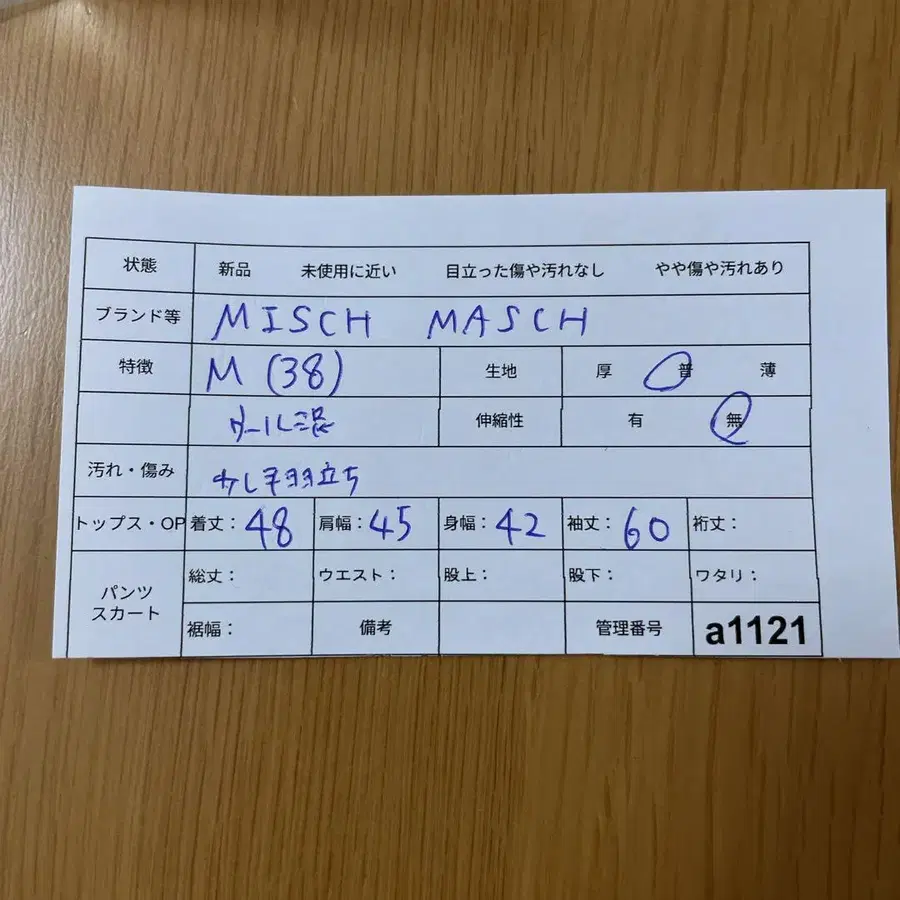 状態 新品 未使用に近い 目立った傷や汚れなし やや傷や汚れあり
ブランド等 MISCH MASCH
特徴 M (38) 生地 厚 普 薄
ウール混 伸縮性 有 無
汚れ・傷み 少し毛羽立ち
トップス・OP 着丈: 48 肩幅: 45 身幅: 42 袖丈: 60 裄丈:
パンツ スカート 総丈: ウエスト: 股上: 股下: ワタリ:
裾幅: 備考 管理番号 a1121